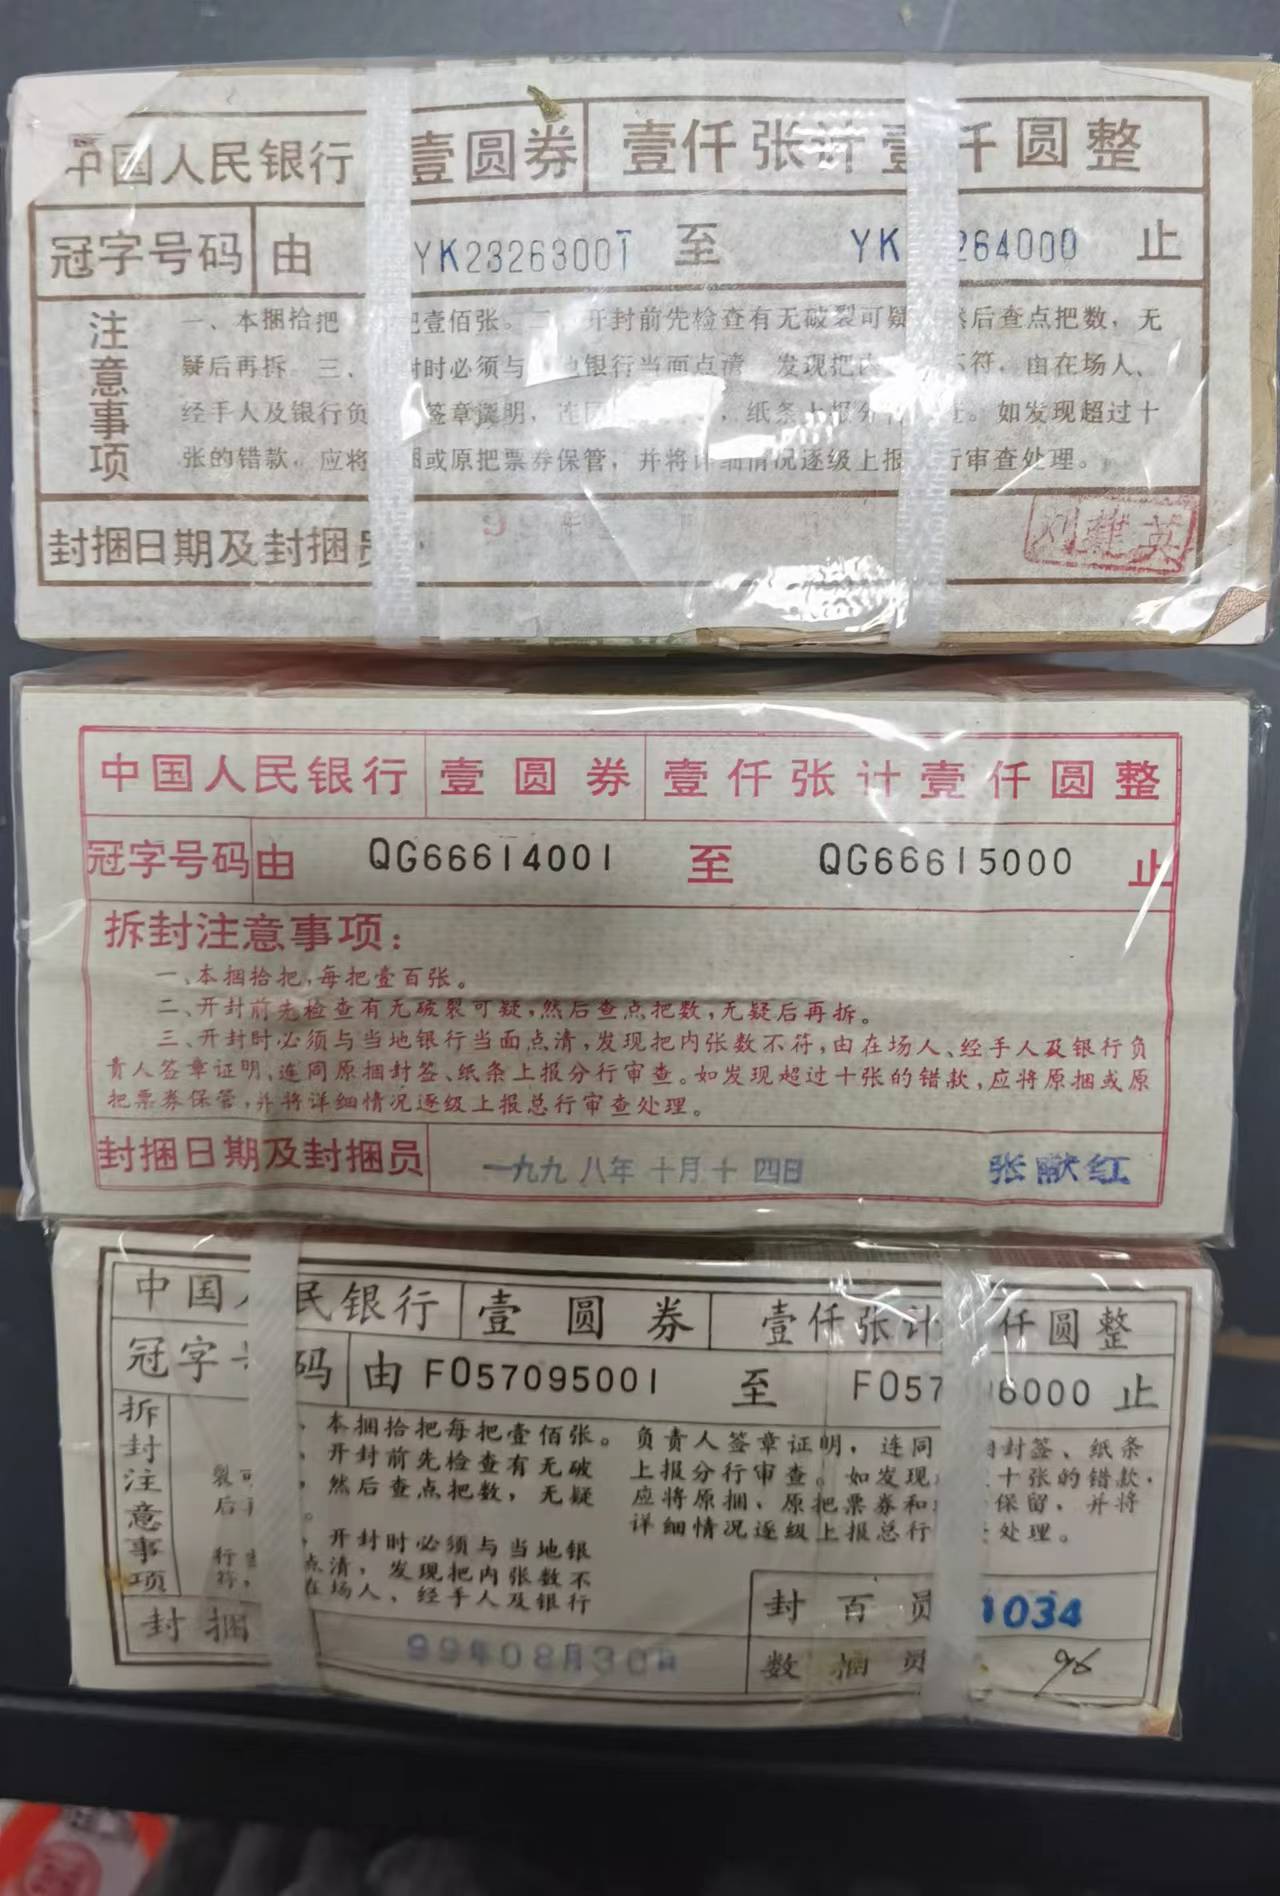 中国人民银行 壹圆券 壹仟张计壹仟圆整
冠字号码 由 YK23263001 至 YK 264000 止
注意事项
一、本捆拾把 把壹佰张。二 开封前先检查有无破裂可疑 然后查点把数，无
疑后再拆 三、 封时必须与 地银行当面点清 发现把内 不符，由在场人、
经手人及银行负 签章 明，连同 ，纸条上报分行 查。如发现超过十
张的错款，应将 捆或原把票券保管，并将详细情况逐级上报 行审查处理。
封捆日期及封捆员 年 英
中国人民银行 壹圆券 壹仟张计壹仟圆整
冠字号码 由 QG66614001 至 QG66615000 止
拆封注意事项：
一、本捆拾把，每把壹百张。
二、开封前先检查有无破裂可疑，然后查点把数，无疑后再拆。
三、开封时必须与当地银行当面点清，发现把内张数不符，由在场人、经手人及银行负
责人签章证明、连同原捆封签、纸条上报分行审查。如发现超过十张的错款，应将原捆或原
把票券保管，并将详细情况逐级上报总行审查处理。
封捆日期及封捆员 一九九八年十月十四日 张献红
中国人民银行 壹圆券 壹仟张计 仟圆整
冠字号码 由 FO57095001 至 FO57 96000 止
拆封注意事项
、本捆拾把每把壹佰张。
、开封前先检查有无破
裂可 ，然后查点把数，无疑
后再 。
、开封时必须与当地银
行 点清，发现把内张数不
符， 在场人、经手人及银行
负责人签章证明，连同 捆封签、纸条
上报分行审查。如发现 十张的错款，
应将原捆、原把票券和 保留，并将
详细情况逐级上报总行 处理。
封捆 99年08月30日
封百员 1034
数抽员 96